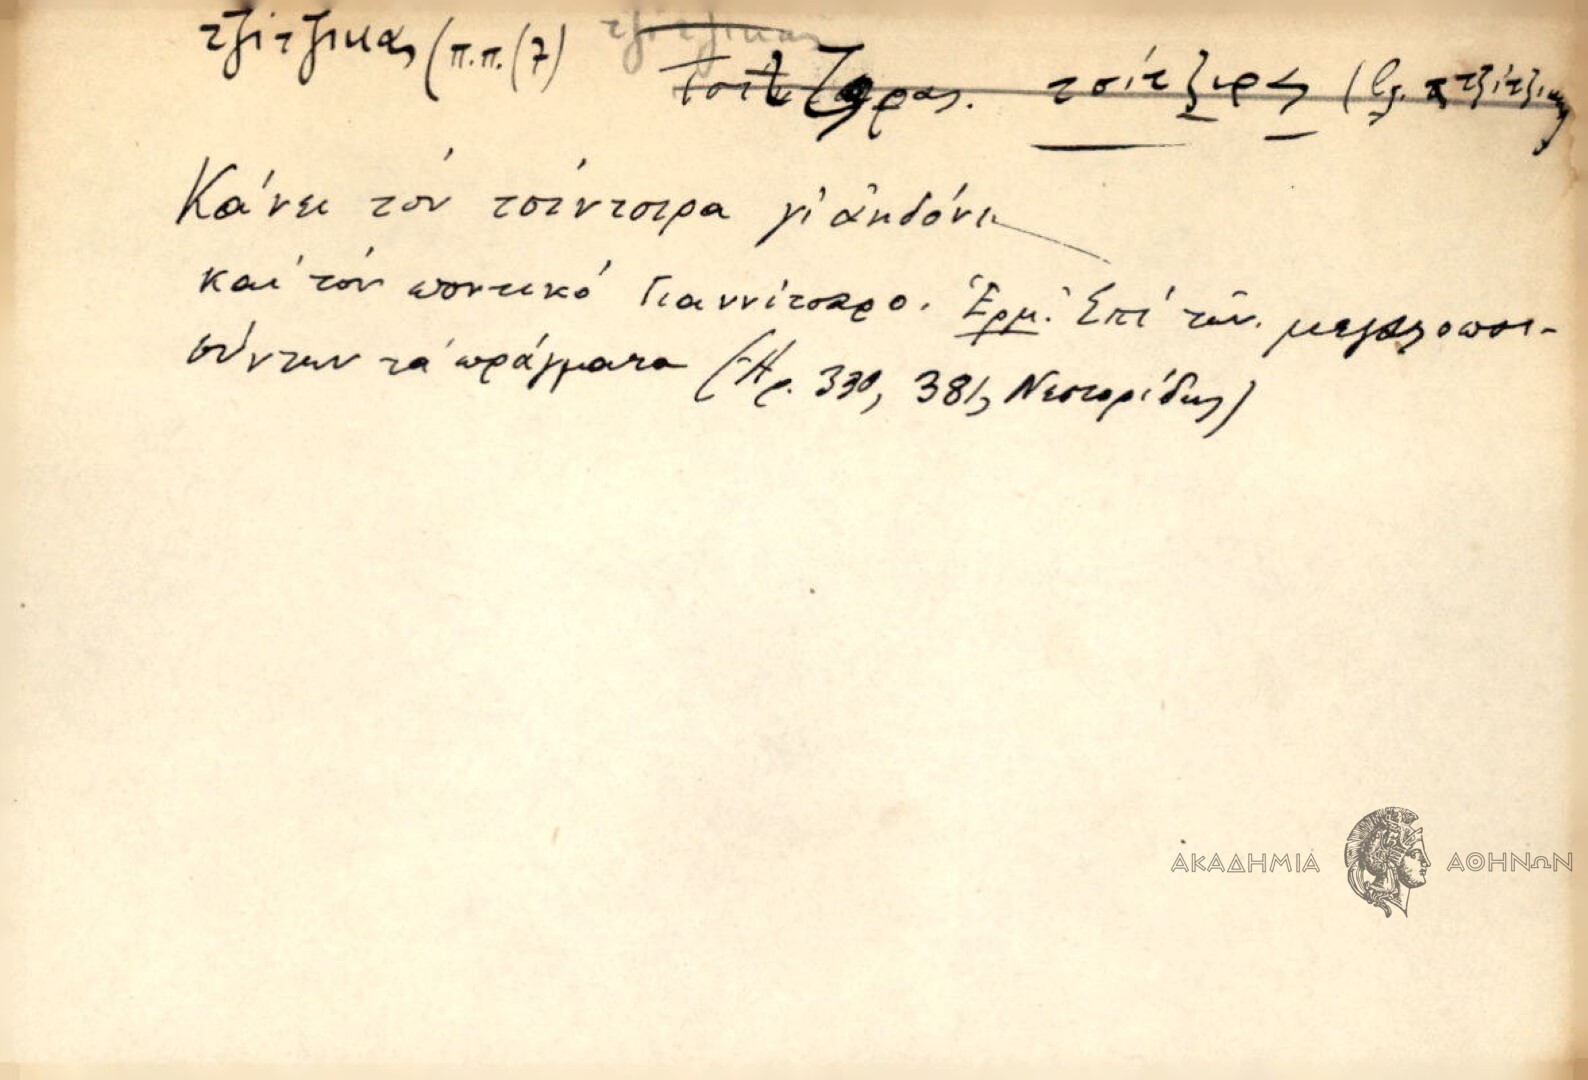 τζίτζικας (π.π. (7) τζίτζικας τσίτζιρας (βλ. τζίτζικας
Κάνει τόν τσίντσιρα γι' ἀηδόνι
καί τόν ποντικό Γιαννίτσαρο. Ἑρμ. Ἐπί τῶν μεγαλοποι-
ούντων τά πράγματα (Ἠρ. 330, 381, Νεστορίδης)
ΑΚΑΔΗΜΙΑ ΑΘΗΝΩΝ